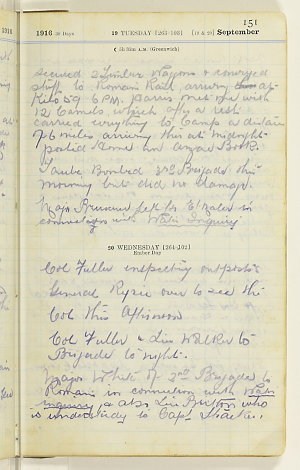 151
1916 30 Days 19 TUESDAY [263-103] [19 & 20] September
☾ 5h 35m A.M. (Greenwich)
secured 2 Limber Wagons & conveyed
stuff to Romani Rail, arriving at
Kilo 59 6 P.M. Harris met me with
12 Camels, which after a rest
carried everything to Camp a distance
7-6 miles arriving there at midnight
posted home an Argus Book.
Taube Bombed 3rd Brigade this
morning but did no damage.
Major left for El Kaler in
connection with Water Inquiry
20 WEDNESDAY [264-102]
Ember Day
Col Fuller inspecting outposts
General Ryrie over to see the
Col this Afternoon
Col Fuller & Lieu Walker to
Brigade to night.
Major White of 3rd Brigade to
Romani in connection with Water
inquiry, & also Lieu Burton who
is understudy to Capt